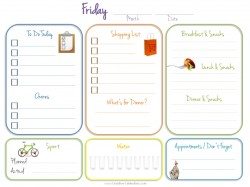 Friday
Month Date
To Do Today
Shopping List
Breakfast & Snacks
Lunch & Snacks
Chores
What's for Dinner?
Dinner & Snacks
Sport
Planned
Actual
Water
Appointments / Don't Forget